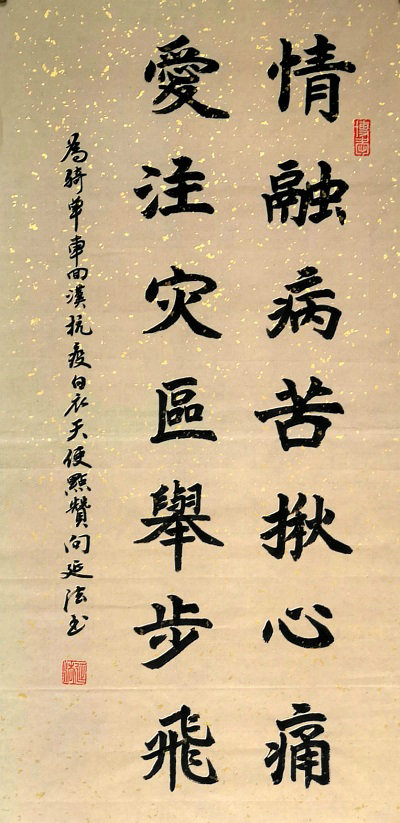 情融病苦揪心痛
愛注灾區舉步飛
為騎单車回漢抗疫白衣天使點贊向延法书